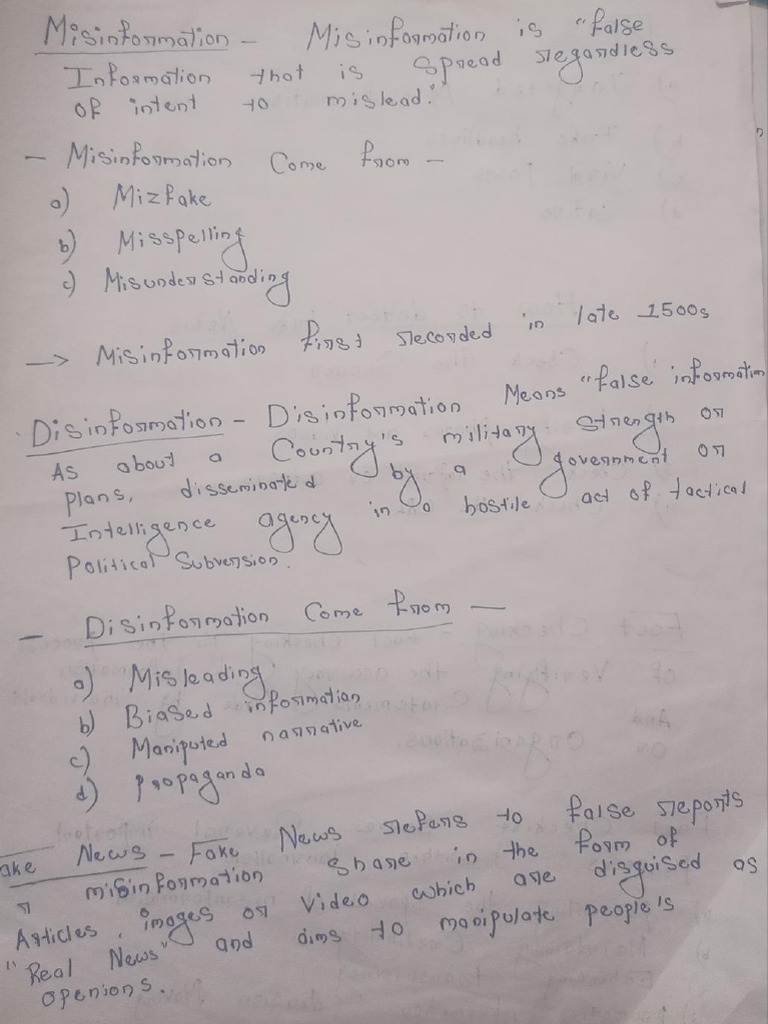 Misinformation - Misinformation is "false
Information that is spread regardless
of intent to mislead."
- Misinformation Come from -
a) Mizfake
b) Misspelling
c) Misunderstanding
-> Misinformation first recorded in late 1500s
Disinformation - Disinformation Means "false information
As about a Country's military strength or
plans, disseminated by a government or
Intelligence agency in a hostile act of tactical
Political Subversion.
- Disinformation Come from -
a) Misleading
b) Biased information
c) Maniputed narrative
d) propaganda
ake News - Fake News refers to false reports
r misinformation share in the form of
Articles, images or video which are disguised as
"Real News" and aims to manipulate people's
openions.